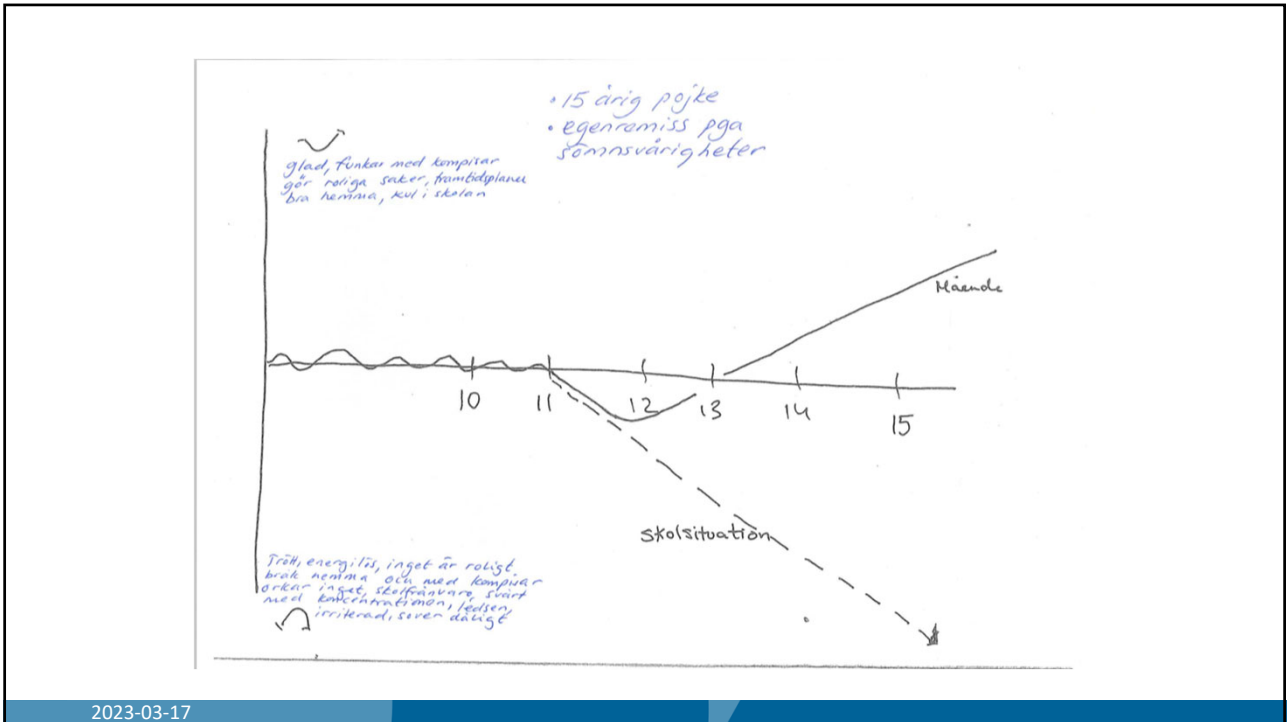 • 15 årig pojke
• egenremiss pga
sömnsvårigheter
glad, funkar med kompisar
gör roliga saker, framtidsplaner
bra hemma, kul i skolan
Mående
10 11 12 13 14 15
Skolsituation
Trött, energilös, inget är roligt
bråk hemma och med kompisar
orkar inget, skolfrånvaro, svårt
med koncentrationen, ledsen,
irriterad, sover dåligt
2023-03-17